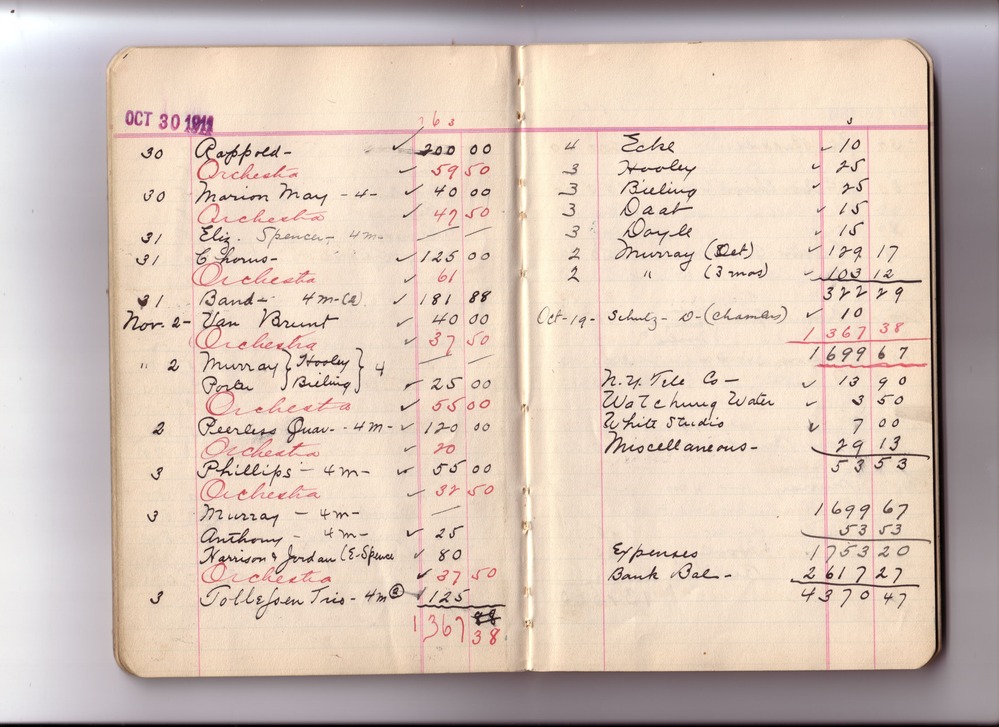 OCT 30 1911
263
30 Rappold- ✓ 200 00
Orchestra ✓ 59 50
30 Marion May - 4 - ✓ 40 00
Orchestra ✓ 47 50
31 Eliz. Spencer - 4m -
31 Chorus - ✓ 125 00
Orchestra ✓ 61
31 Band - 4m-(a) ✓ 181 88
Nov. 2 - Van Brunt ✓ 40 00
Orchestra ✓ 37 50
" 2 Murray } Hooley } 4
Porter } Bieling } ✓ 25 00
Orchestra ✓ 55 00
2 Peerless Quar - 4m - ✓ 120 00
Orchestra ✓ 20
3 Phillips - 4m - ✓ 55 00
Orchestra ✓ 32 50
3 Murray - 4m -
Anthony - 4m - ✓ 25
Harrison & Jordan (E-Spence ✓ 80
Orchestra ✓ 37 50
3 Tollefsen Trio - 4m (a) 125
1367 38
3
4 Ecke ✓ 10
3 Hooley ✓ 25
3 Bieling ✓ 25
3 Daat ✓ 15
3 Doyle ✓ 15
2 Murray (Oct) ✓ 129 17
2 " (3 mos) ✓ 103 12
322 29
Oct - 19 - Schulz - D - (Chambers) ✓ 10
1 367 38
1699 67
N.Y. Tele Co - ✓ 13 90
Watchung Water ✓ 3 50
White Studio ✓ 7 00
Miscellaneous - 29 13
53 53
1699 67
53 53
Expenses 1753 20
Bank Bal - 2617 27
4370 47